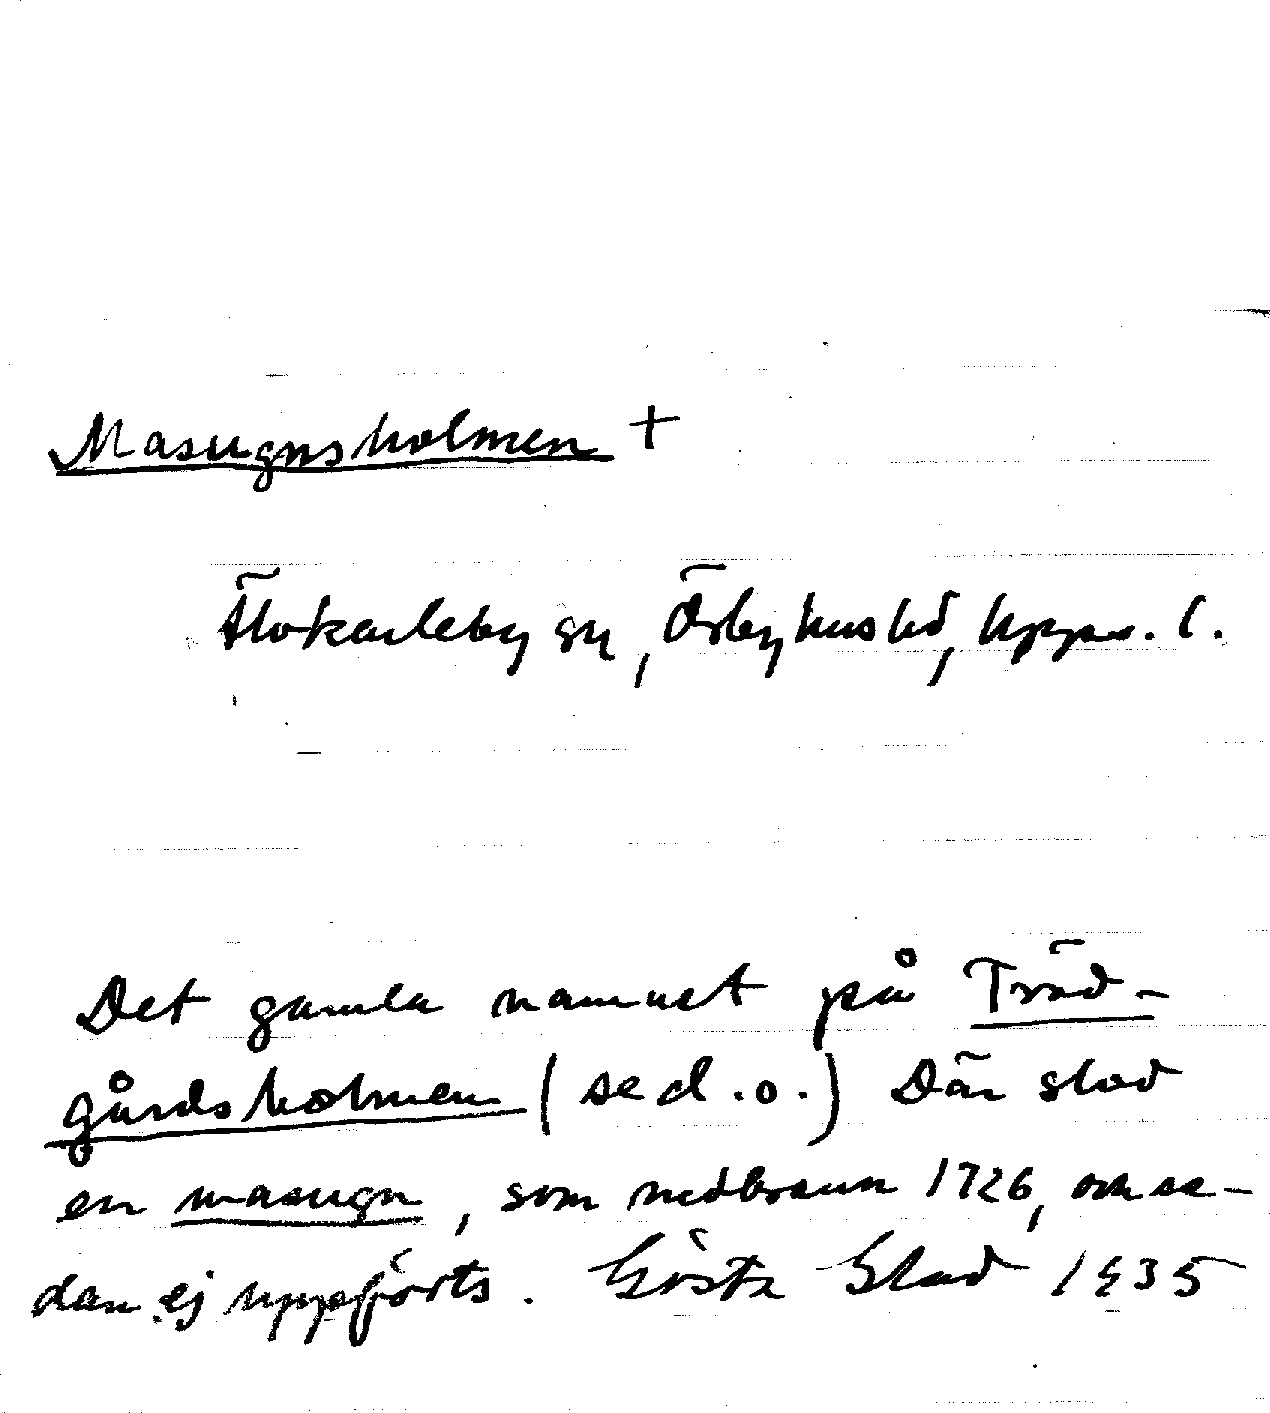 Masugnsholmen +
Älvkarleby sn, Örbyhus hd, Upps. l.
Det gamla namnet på Träd-
gårdsholmen (se d.o.) Där stod
en masugn, som nedbrann 1726, och se-
dan ej uppförts. Gösta Blad 1935